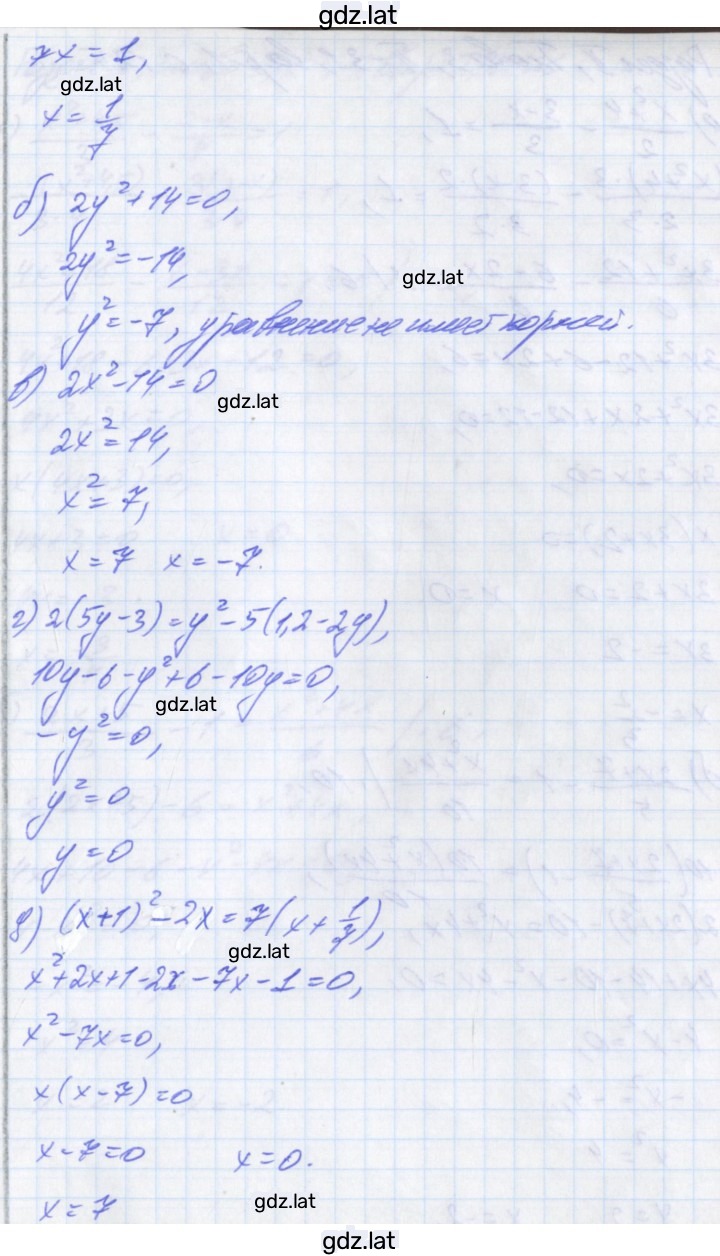 gdz.lat
7x = 1,
gdz.lat
x = 1/7
б) 2y² + 14 = 0,
2y² = -14,
gdz.lat
y² = -7, уравнение не имеет корней.
в) 2x² - 14 = 0
gdz.lat
2x² = 14,
x² = 7,
x = 7 x = -7.
г) 2(5y - 3) = y² - 5(1,2 - 2y),
10y - 6 - y² + 6 - 10y = 0,
gdz.lat
-y² = 0,
y² = 0
y = 0
д) (x + 1)² - 2x = 7(x + 1/7),
gdz.lat
x² + 2x + 1 - 2x - 7x - 1 = 0,
x² - 7x = 0,
x(x - 7) = 0
x - 7 = 0 x = 0.
x = 7
gdz.lat
gdz.lat